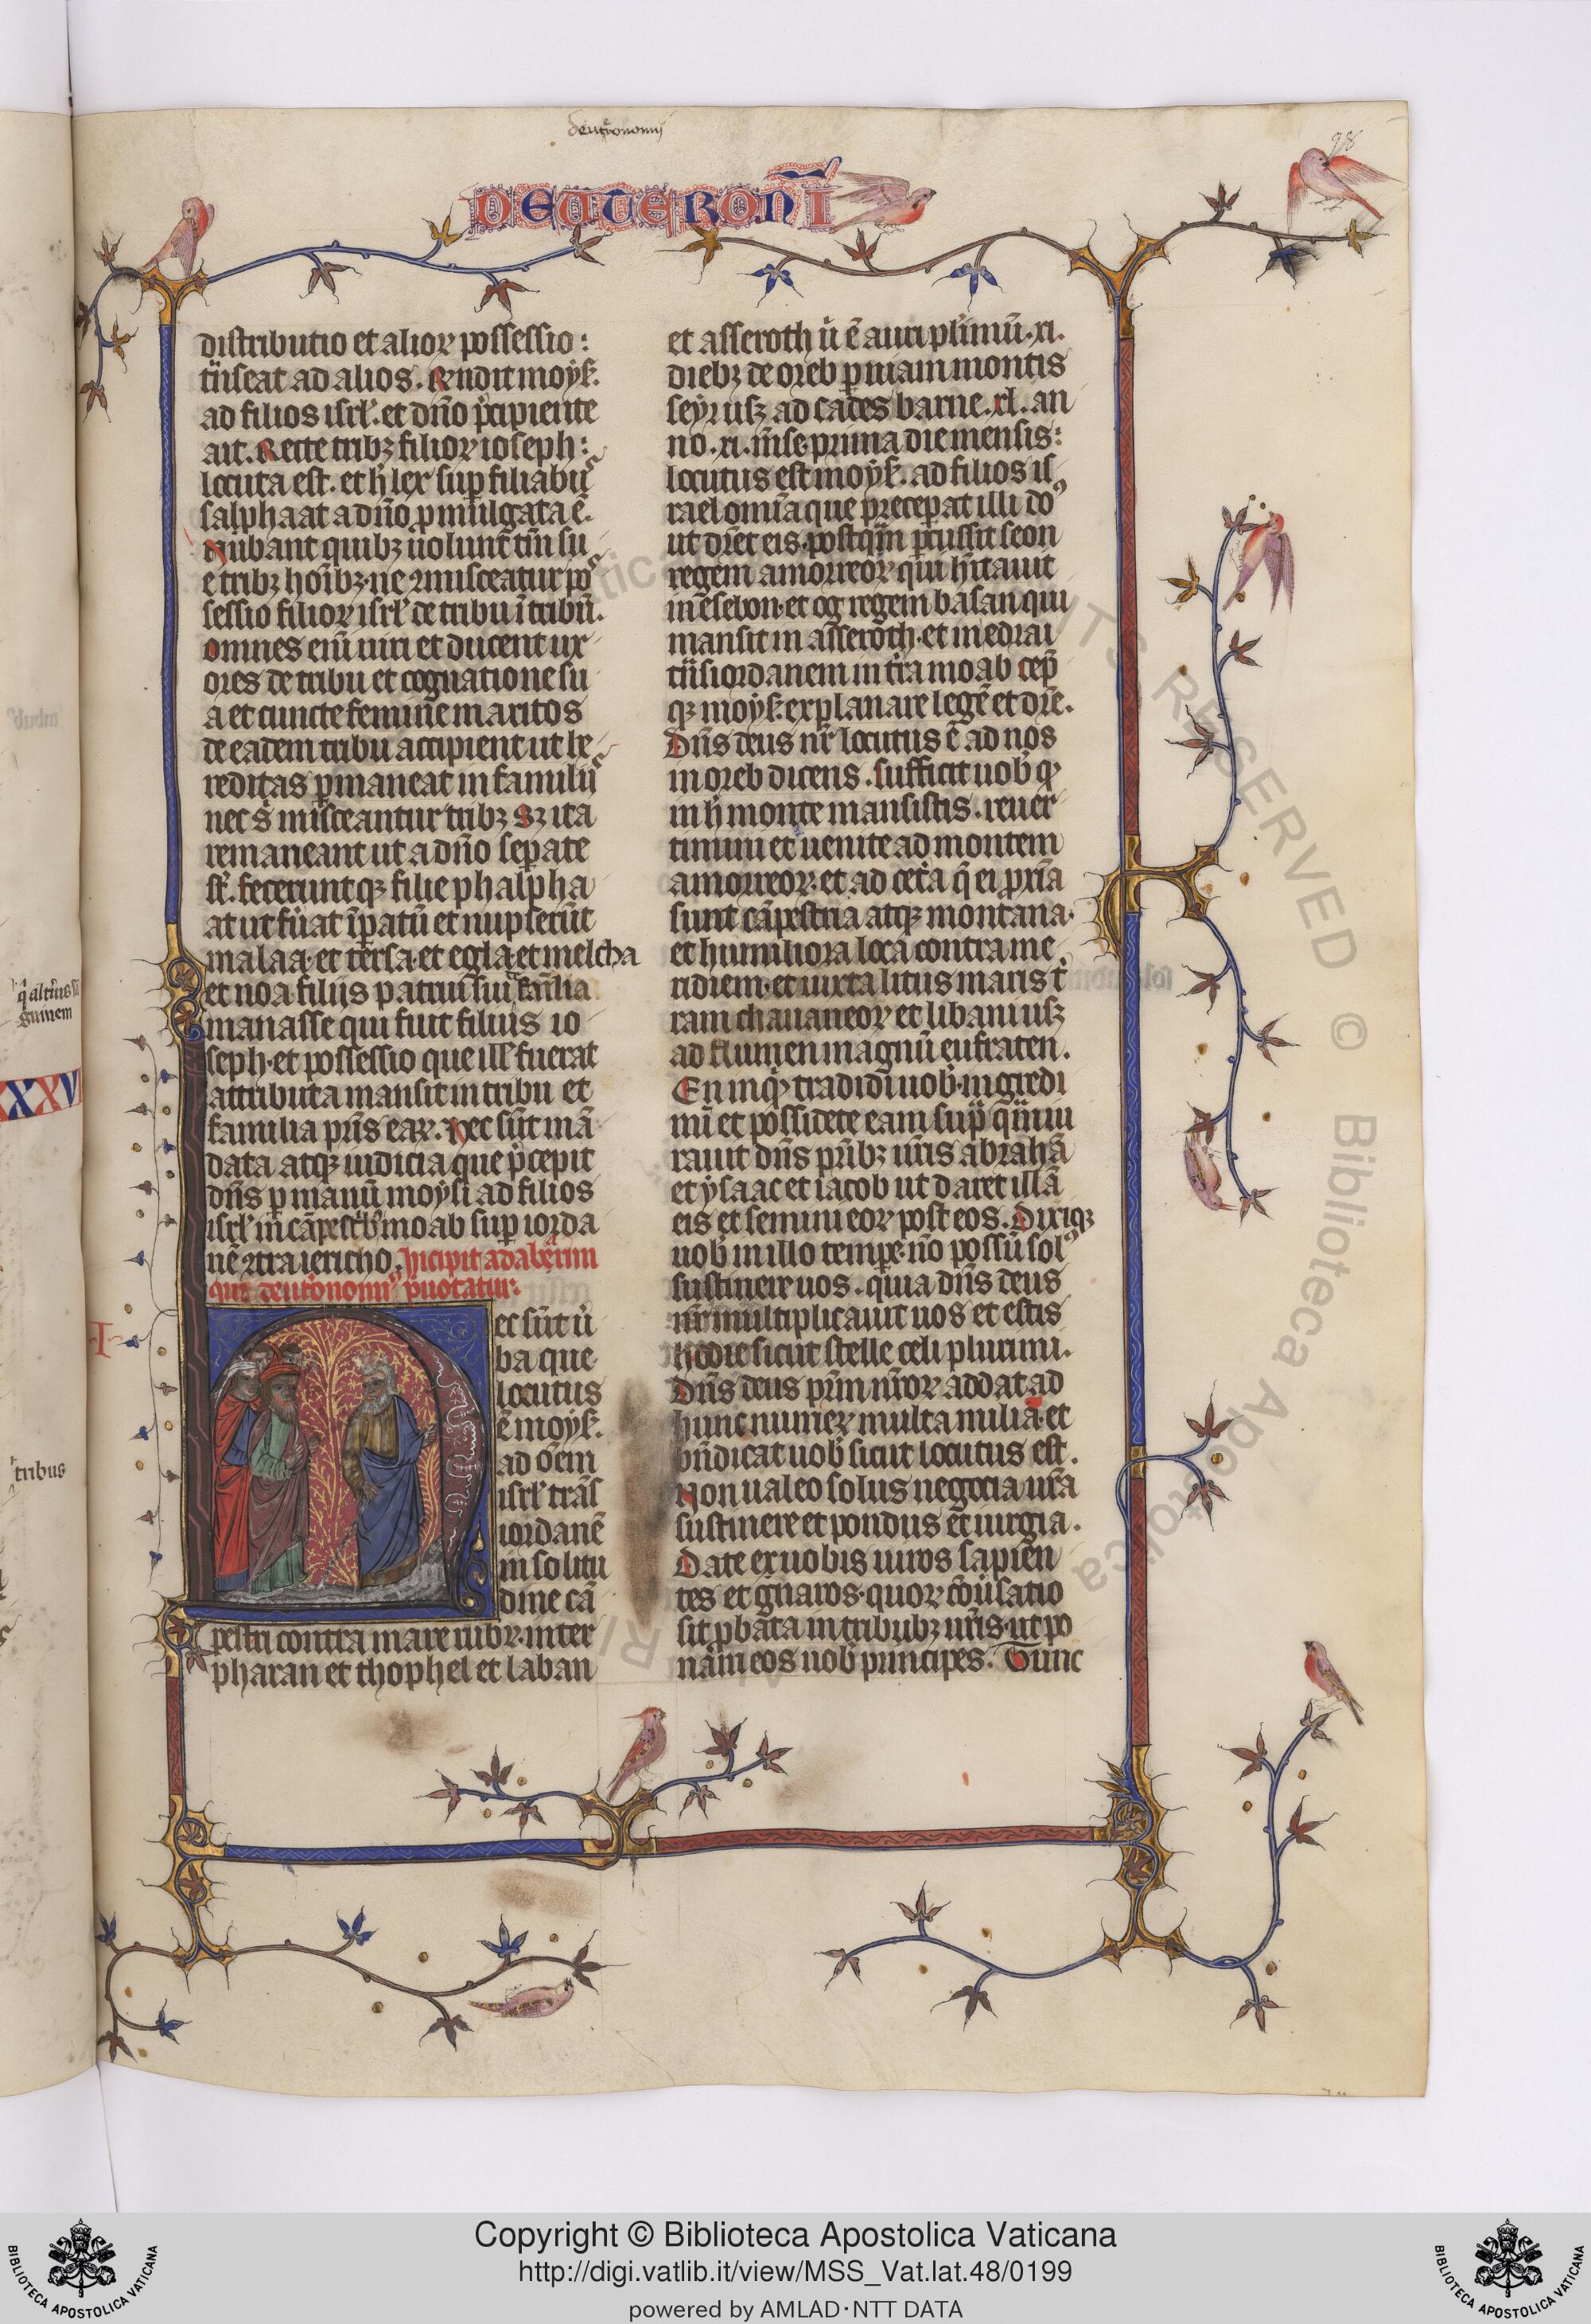 deutronomij
98
DEUTERONI
distributio et alior possessio:
tnseat ad alios. Rndit moyse.
ad filios isrl. et dno pcipiente
ait. Recte tribz filior ioseph:
locuta est. et h lex sup filiabus
salphaat a dno pmulgata e.
Nubant quibz uolunt tm su
e tribz hoibz. ne 9misceatur pos
sessio filior isrl de tribu i tribu.
omnes eni uiri et ducent ux
ores de tribu et cognatione su
a et cuncte femine maritos
de eadem tribu accipient ut he
reditas pmaneat in familiis
nec s misceantur tribz Sz ita
remaneant ut a dno sepate
st. feceruntqz filie phalpha
at ut fuat ipatu et nupserut
malaa. et tersa. et egla et melcha
et noa filiis patrui sui familia
manasse qui fuit filius io
seph. et possessio que ill fuerat
attributa mansit in tribu et
familia pris ear. Hec sut ma
data atqz iudicia que pcepit
dns p manu moysi ad filios
isrl in capestrib moab sup iorda
ne 9tra iericho. Incipit adabarim
qui deutronomius pnotatur.
ec sut u
ba que
locutus
e moyse.
ad oem
isrl trans
iordane
in solitu
dine ca
pestri contra mare rubr. inter
pharan et thophel et laban
et asseroth u e auri plimu. xi.
diebz de oreb p uiam montis
seyr usqz ad cades barne. xl. an
no. xi. mse prima die mensis:
locutus est moyse. ad filios is
rael omia que preceperat illi do9
ut diret eis. postqm pcussit seon
regem amorreor qui hitauit
in esebon. et og regem basan qui
mansit in asseroth. et in edrai
tnsiordanem in tra moab cep
qz moyse. explanare lege et dire.
Dns deus nr locutus e ad nos
in oreb dicens. sufficit uob q
in h monte mansistis. reuer
timini et uenite ad montem
amorreor. et ad cetera q ei pxia
sunt capestria atqz montana.
et humiliora loca contra me
ridiem. et iuxta litus maris t
ram chananeor et libani usqz
ad flumen magnu eufraten.
En inqd tradidi uob. ingredi
mi et possidete eam sup qm iu
rauit dns pribz uris abraha
et ysaac et iacob ut daret illa
eis et semini eor post eos. Dixiqz
uob in illo tempe. no possu sol9
sustinere uos. quia dns deus
nr multiplicauit uos et estis
hodie sicut stelle celi plurimi.
Dns deus prm nror addat ad
hunc numer multa milia. et
bndicat uob sicut locutus est.
Non ualeo solus negocia ura
sustinere et pondus et iurgia.
Date ex uobis uiros sapien
tes et gnaros. quor couersatio
sit pbata in tribubz uris. ut po
nam eos uob principes. Tunc
guinem
XXXVI
I
tribus
Copyright © Biblioteca Apostolica Vaticana
http://digi.vatlib.it/view/MSS_Vat.lat.48/0199
powered by AMLAD·NTT DATA
BIBLIOTECA APOSTOLICA VATICANA
BIBLIOTECA APOSTOLICA VATICANA